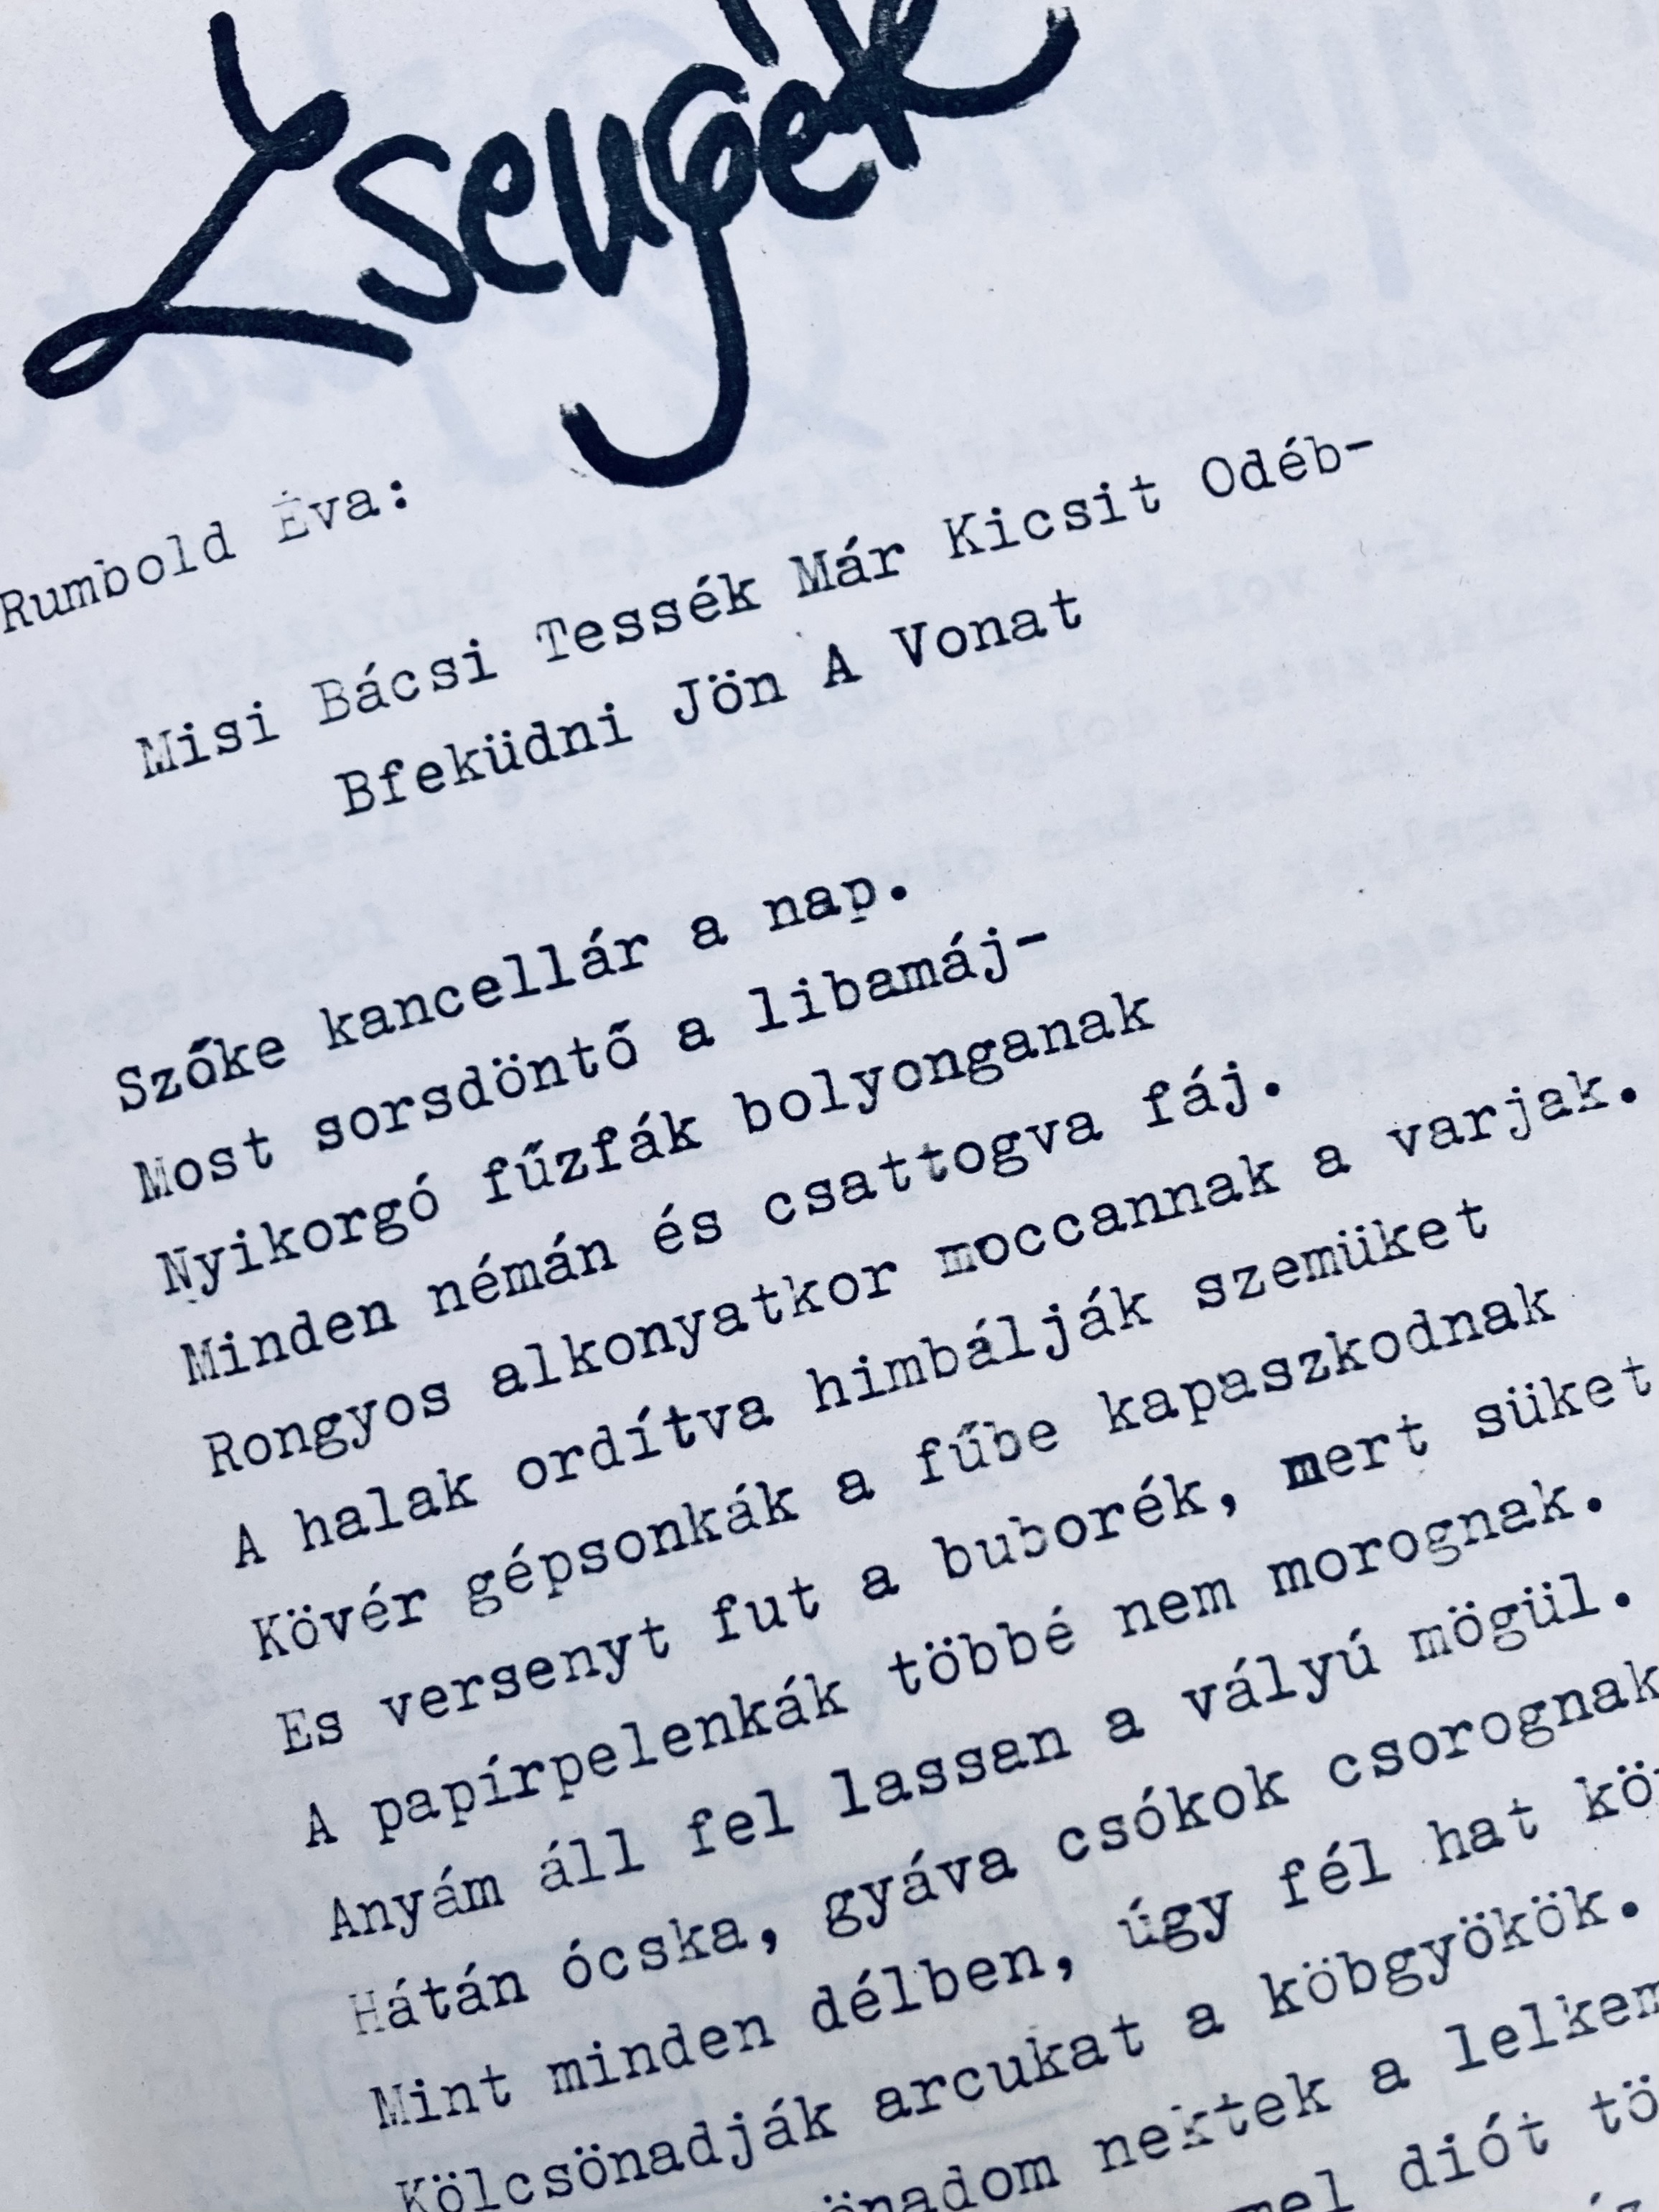 Zsengék
Rumbold Éva:
Misi Bácsi Tessék Már Kicsit Odéb-
Bfeküdni Jön A Vonat
Szőke kancellár a nap.
Most sorsdöntő a libamáj-
Nyikorgó fűzfák bolyonganak
Minden némán és csattogva fáj.
Rongyos alkonyatkor moccannak a varjak.
A halak ordítva himbálják szemüket
Kövér gépsonkák a fűbe kapaszkodnak
Es versenyt fut a buborék, mert süket
A papírpelenkák többé nem morognak.
Anyám áll fel lassan a vályú mögül.
Hátán ócska, gyáva csókok csorognak
Mint minden délben, úgy fél hat
Kölcsönadják arcukat a köbgyökök.
nektek a
diót